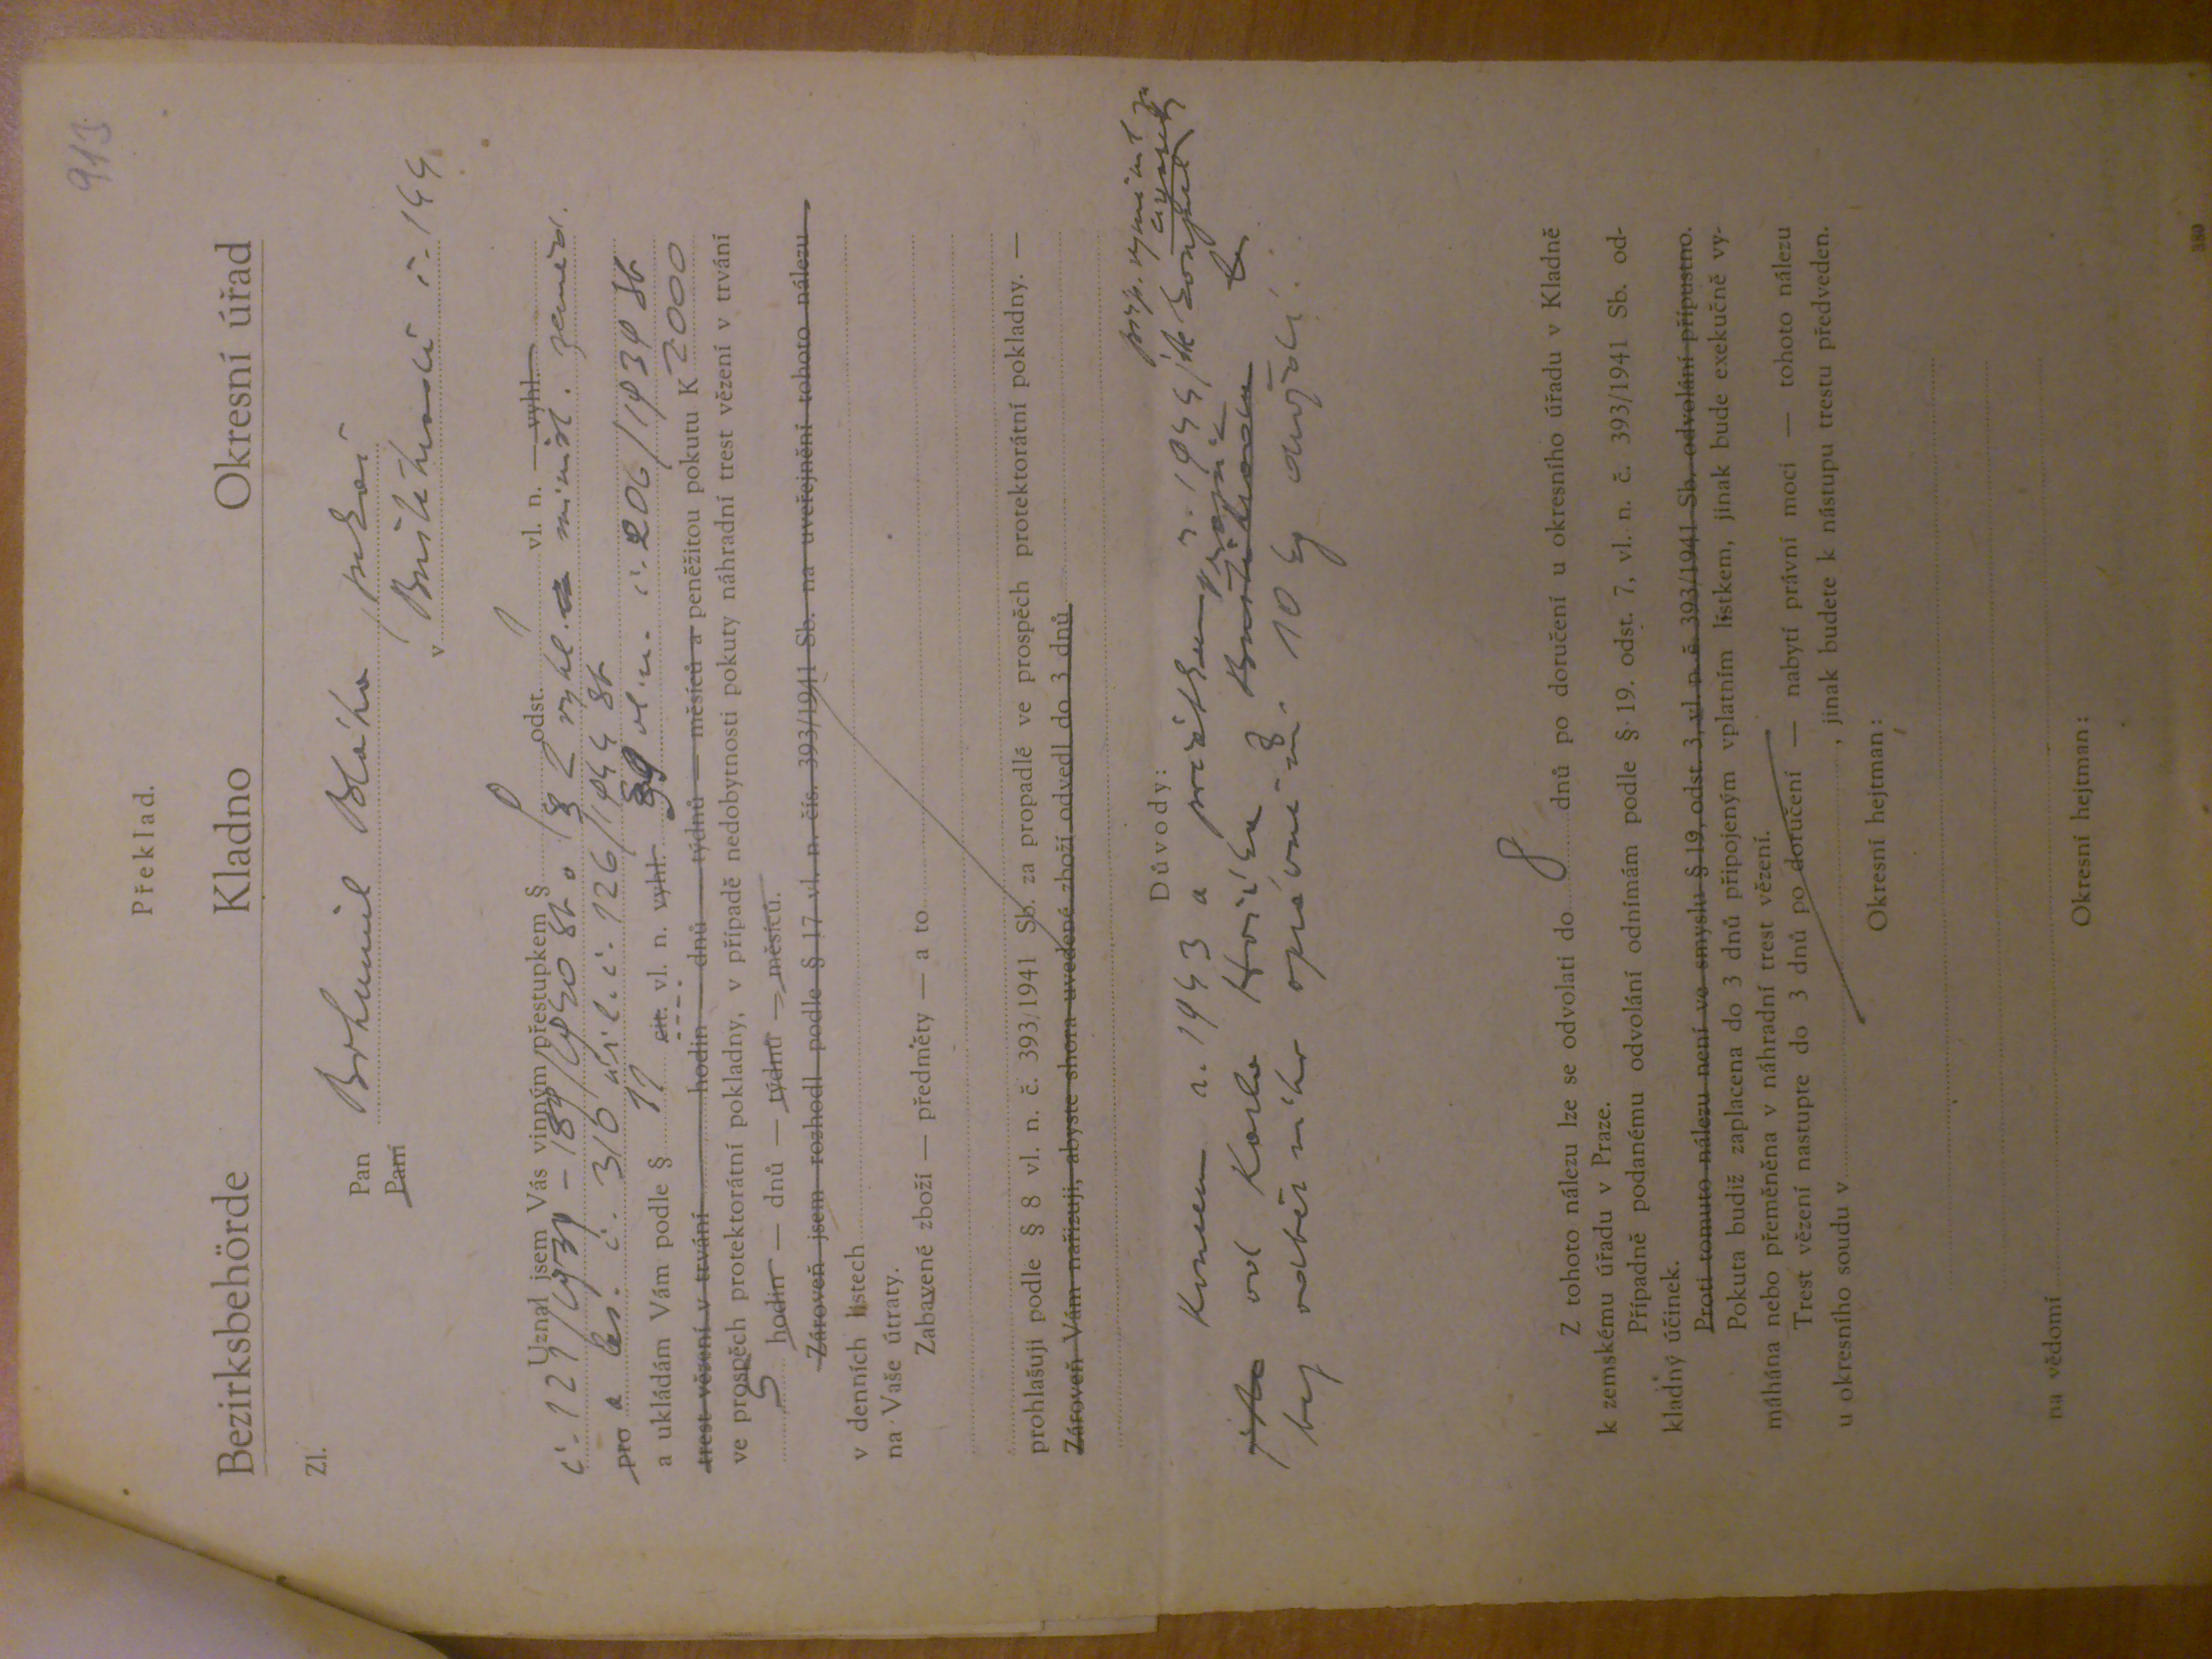 913
Překlad.
Bezirksbehörde Kladno Okresní úřad
Zl.
Pan Bohumil Bláha, pekař
Paní
v Buštěhradě č. 144
Uznal jsem Vás vinným přestupkem § odst. 1 vl. n. — vyhl.
č. 121/1939 – 189/1940 Sb a § 2 vyhl. minist. zeměd.
pro a les. č. 310 úř. l. č. 126/1944 Sb
a ukládám Vám podle § 11 cit. vl. n. vyhl. vl. n. č. 206/1939 Sb
trest vězení v trvání hodin — dnů — týdnů — měsíců a peněžitou pokutu K 2000
ve prospěch protektorátní pokladny, v případě nedobytnosti pokuty náhradní trest vězení v trvání
5 hodin — dnů — týdnů — měsíců.
Zároveň jsem rozhodl podle § 17 vl. n. čís. 393/1941 Sb. na uveřejnění tohoto nálezu
v denních listech
na Vaše útraty.
Zabavené zboží — předměty — a to
prohlašuji podle § 8 vl. n. č. 393/1941 Sb. za propadlé ve prospěch protektorátní pokladny. —
Zároveň Vám nařizuji, abyste shora uvedené zboží odvedl do 3 dnů
příp. vyměnil za
Důvody:
Koncem r. 1943 a počátkem r. 1944 jste koupil
jste od Karla z Buštěhradu
bez odběrního oprávnění 10 kg droždí.
Z tohoto nálezu lze se odvolati do 8 dnů po doručení u okresního úřadu v Kladně
k zemskému úřadu v Praze.
Případně podanému odvolání odnímám podle § 19. odst. 7, vl. n. č. 393/1941 Sb. od-
kladný účinek.
Proti tomuto nálezu není ve smyslu § 19, odst. 3, vl. n. č. 393/1941 Sb. odvolání přípustno.
Pokuta budiž zaplacena do 3 dnů připojeným vplatním lístkem, jinak bude exekučně vy-
máhána nebo přeměněna v náhradní trest vězení.
Trest vězení nastupte do 3 dnů po doručení — nabytí právní moci — tohoto nálezu
u okresního soudu v , jinak budete k nástupu trestu předveden.
Okresní hejtman:
na vědomí
Okresní hejtman: